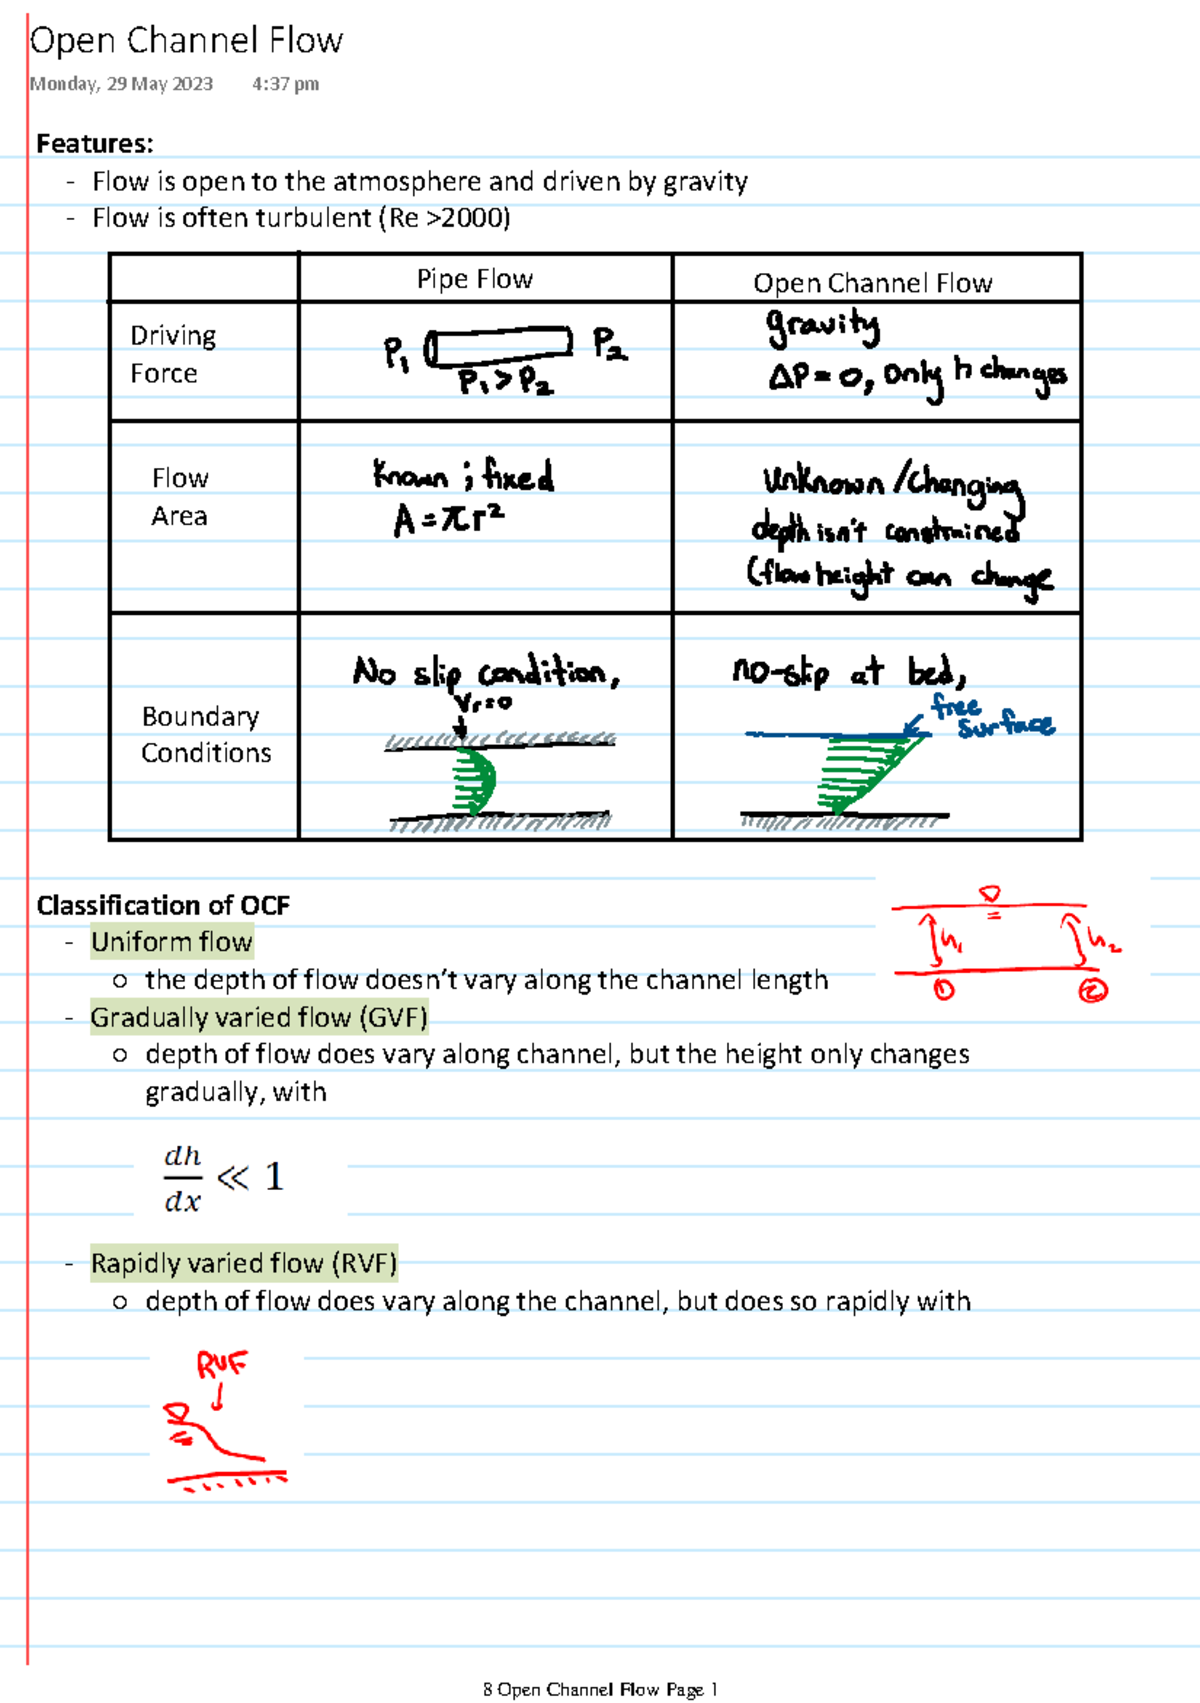 Open Channel Flow
Monday, 29 May 2023 4:37 pm
Features:
- Flow is open to the atmosphere and driven by gravity
- Flow is often turbulent (Re >2000)
Pipe Flow
Open Channel Flow
Driving
Force
P₁ P₂
P₁ > P₂
gravity
ΔP = 0, only h changes
Flow
Area
Known ; fixed
A = πr²
unknown / changing
depth isn't constrained
(flow height can change
Boundary
Conditions
No slip condition,
Vr=0
no-slip at bed,
free
surface
Classification of OCF
- Uniform flow
○ the depth of flow doesn't vary along the channel length
h₁ h₂
① ②
- Gradually varied flow (GVF)
○ depth of flow does vary along channel, but the height only changes
gradually, with
dh/dx ≪ 1
- Rapidly varied flow (RVF)
○ depth of flow does vary along the channel, but does so rapidly with
RVF
8 Open Channel Flow Page 1